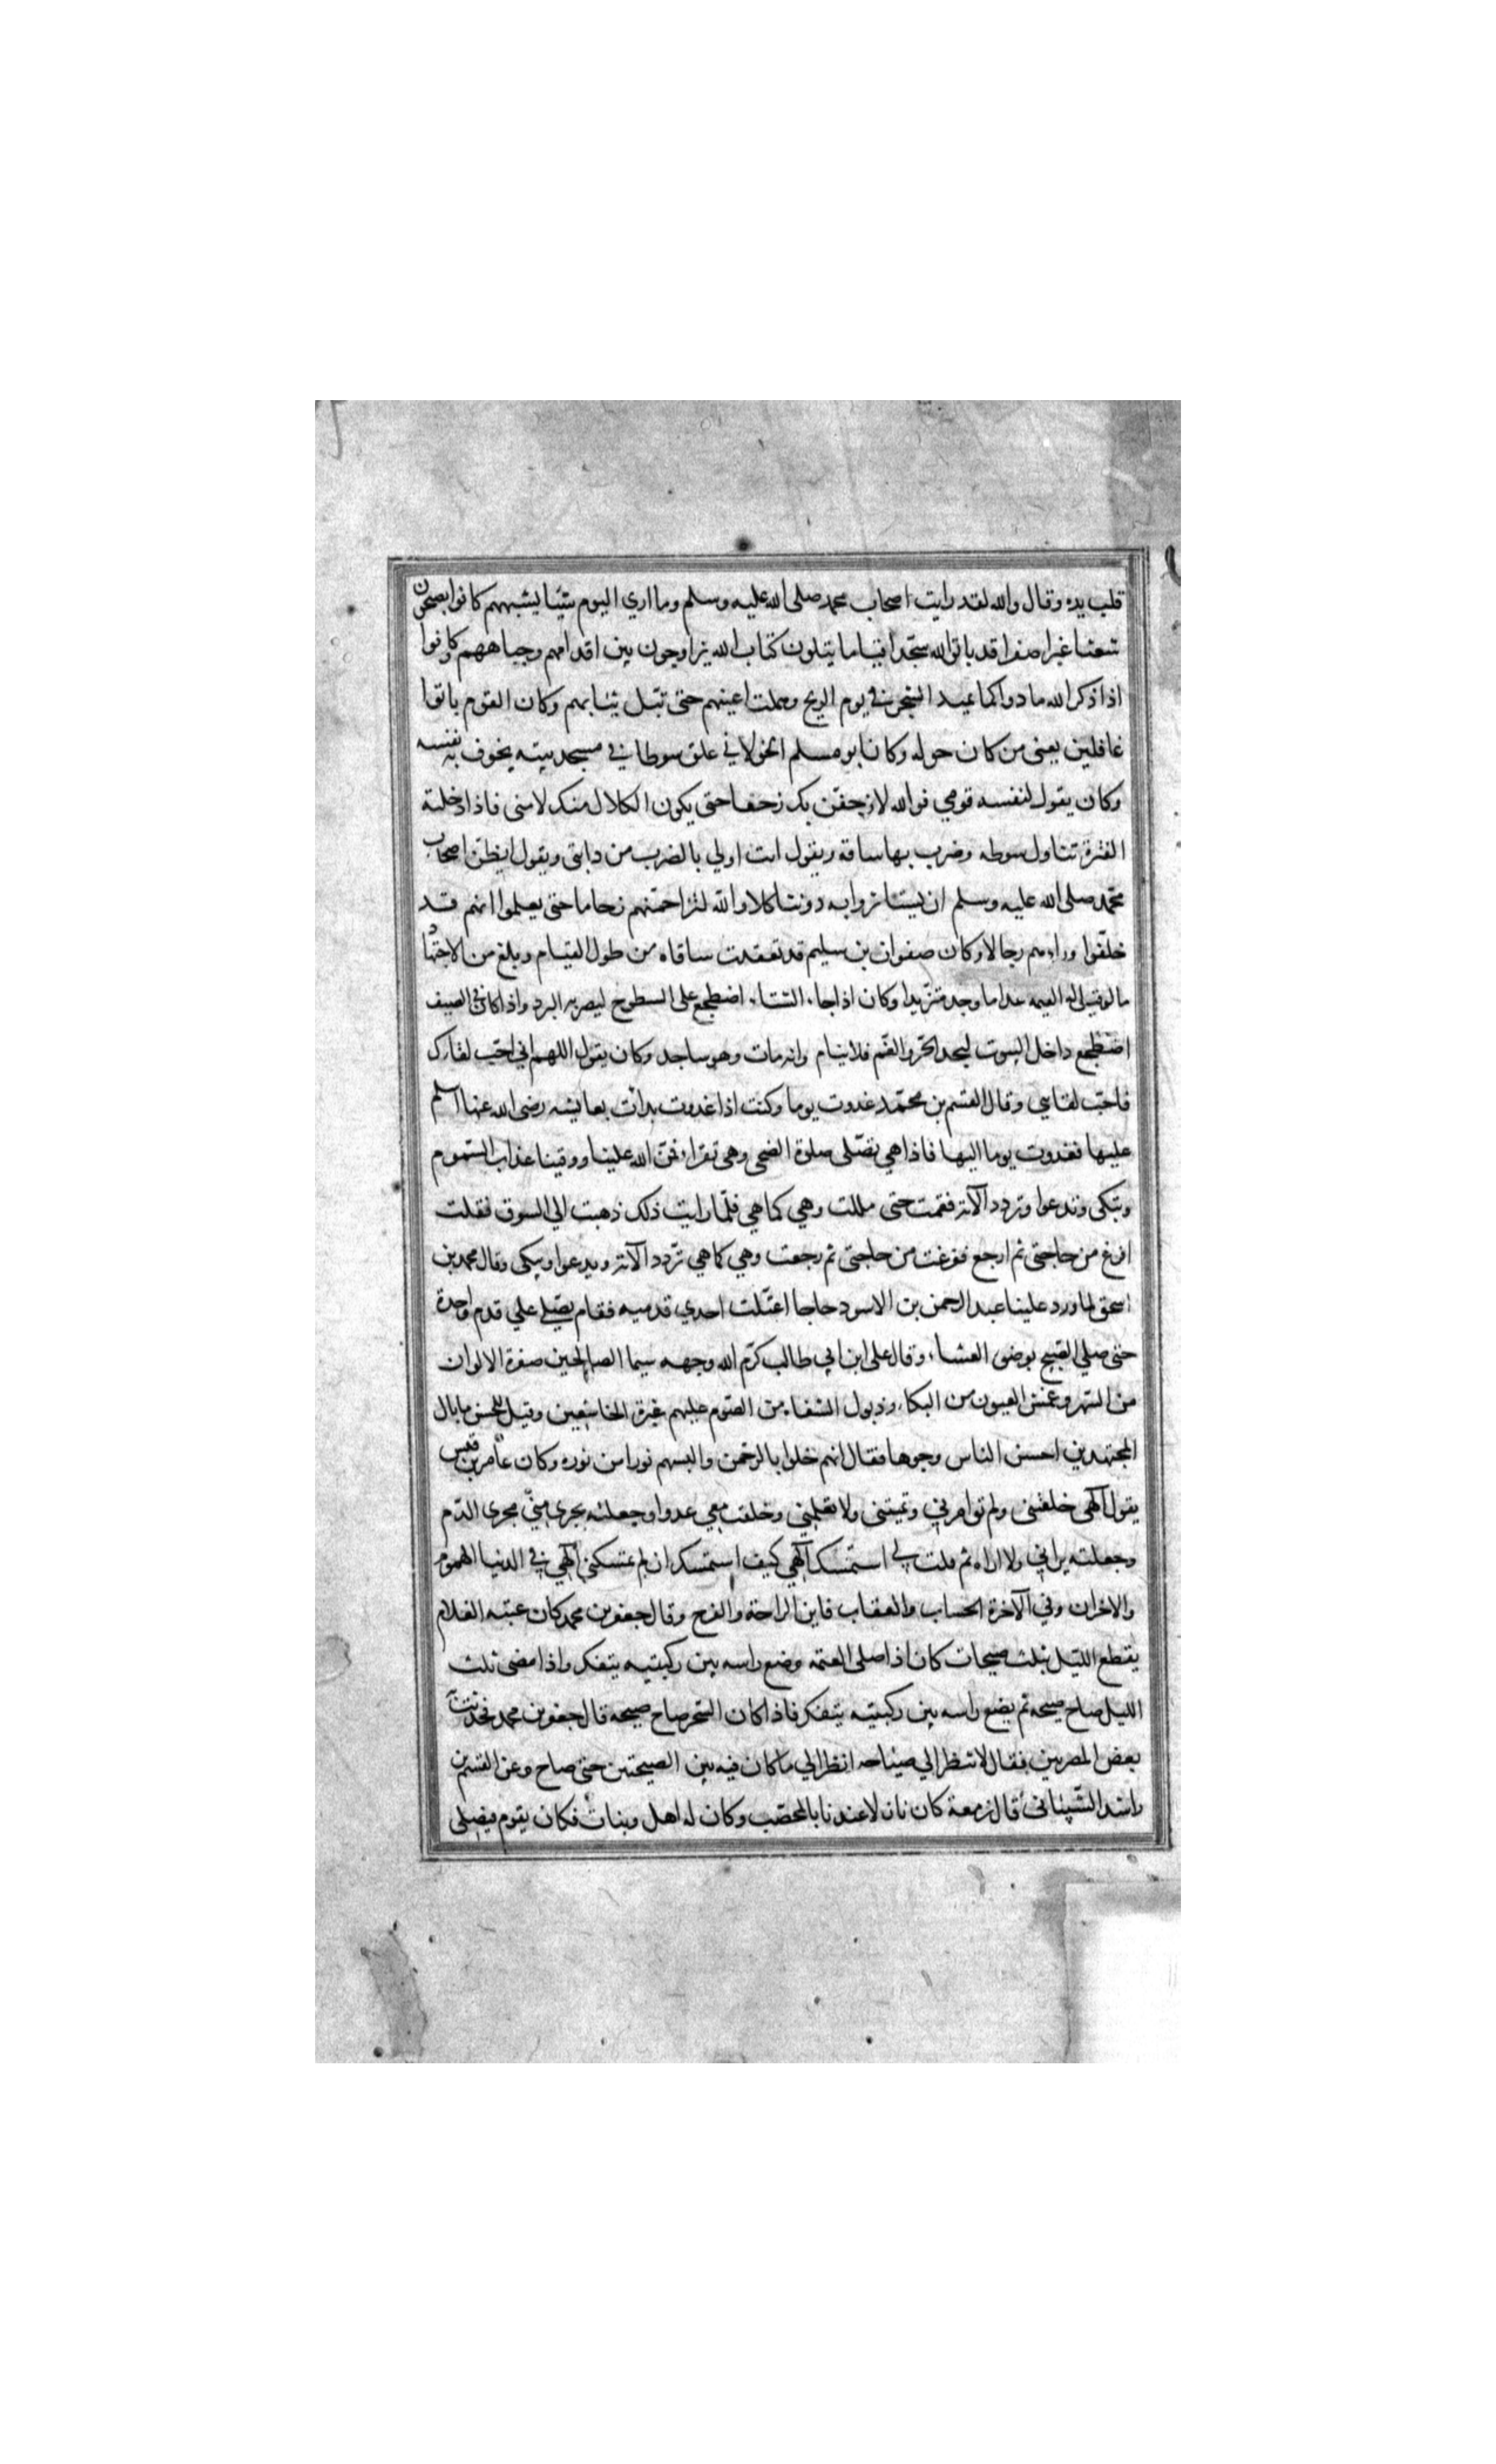 قلب يده وقال والله لقد رايت اصحاب محمد صلى الله عليه وسلم وما اري اليوم شيئا يشبههم كانوا يصبحون
شعثا غبرا صفرا قد باتوا لله سجدا وقياما يتلون كتاب الله يراوحون بين اقدامهم وجباههم وكانوا
اذا ذكر الله مادوا كما يميد الشجر في يوم الريح وهملت اعينهم حتى تبتل ثيابهم وكان القوم باتوا
غافلين يعني من كان حوله وكان ابو مسلم الخولاني علق سوطا في مسجد بيته يخوف به نفسه
وكان يقول لنفسه قومي فوالله لازحفن بك زحفا حتى يكون الكلال منك لا مني فاذا دخلته
الفترة تناول سوطه وضرب بها ساقه ويقول انت اولي بالضرب من دابتي ويقول ايظن اصحاب
محمد صلى الله عليه وسلم ان يستاثروا به دوننا كلا والله لنزاحمنهم زحاما حتى يعلموا انهم قد
خلفوا وراءهم رجالا وكان صفوان بن سليم قد تعقدت ساقاه من طول القيام وبلغ من الاجتهاد
ما لو قيل له القيمه غدا ما وجد متزيدا وكان اذا جاء الشتاء اضطجع على السطوح ليضربه البرد واذا كان في الصيف
اضطجع داخل البيوت ليجد الحر والغم فلا ينام وانه مات وهو ساجد وكان يقول اللهم اني احب لقاءك
فاحب لقايي وقال القسم بن محمد غدوت يوما وكنت اذا غدوت بدات بعايشه رضى الله عنها اسلم
عليها فغدوت يوما اليها فاذا هي تصلى صلوة الضحى وهى تقرا فمن الله علينا ووقينا عذاب السموم
وتبكى وتدعوا وتردد الآية فقمت حتى مللت وهي كما هي فلما رايت ذلك ذهبت الى السوق فقلت
افرغ من حاجتى ثم ارجع ففرغت من حاجتى ثم رجعت وهي كما هي تردد الآية ويدعوا ويبكى وقال محمد بن
اسحق لما ورد علينا عبد الرحمن بن الاسود حاجا اعتلت احدي قدميه فقام يصلي علي قدم واحدة
حتى صلي الصبح بوضوء العشاء وقال على ابن ابي طالب كرم الله وجهه سيما الصالحين صفرة الالوان
من السهر وعمش العيون من البكاء وذبول الشفاه من الصوم عليهم غبرة الخاشعين وقيل للحسن ما بال
المجتهدين احسن الناس وجوها فقال انهم خلوا بالرحمن والبسهم نورا من نوره وكان عامر بن قيس
يقول آلهى خلقتنى ولم توامرني وتميتنى ولا تعلمني وخلقت معي عدوا وجعلته يجرى منّي مجرى الدّم
وجعلته يراني ولا اراه ثم قلت لي استمسك آلهي كيف استمسك ان لم تمسكني آلهي في الدنيا الهموم
والاخزان وفي الآخرة الحساب والعقاب فاين الراحة والفرح وقال جعفر بن محمد كان عتبه الغلام
يقطع الليل بثلث صيحات كان اذا صلى العتمه وضع راسه بين ركبتيه يتفكر واذا مضى ثلث
الليل صاح صيحه ثم يضع راسه بين ركبتيه يتفكر فاذا كان السحر صاح صيحه قال جعفر بن محمد فحدثت
بعض المصريين فقال لا تنظر الي صياحه انظر الي ما كان فيه بين الصيحتين حتى صاح وعن القسم بن
راشد الشيبانى قال زمعة كان نازلا عندنا بالمحصب وكان له اهل وبنات فكان يقوم فيصلى